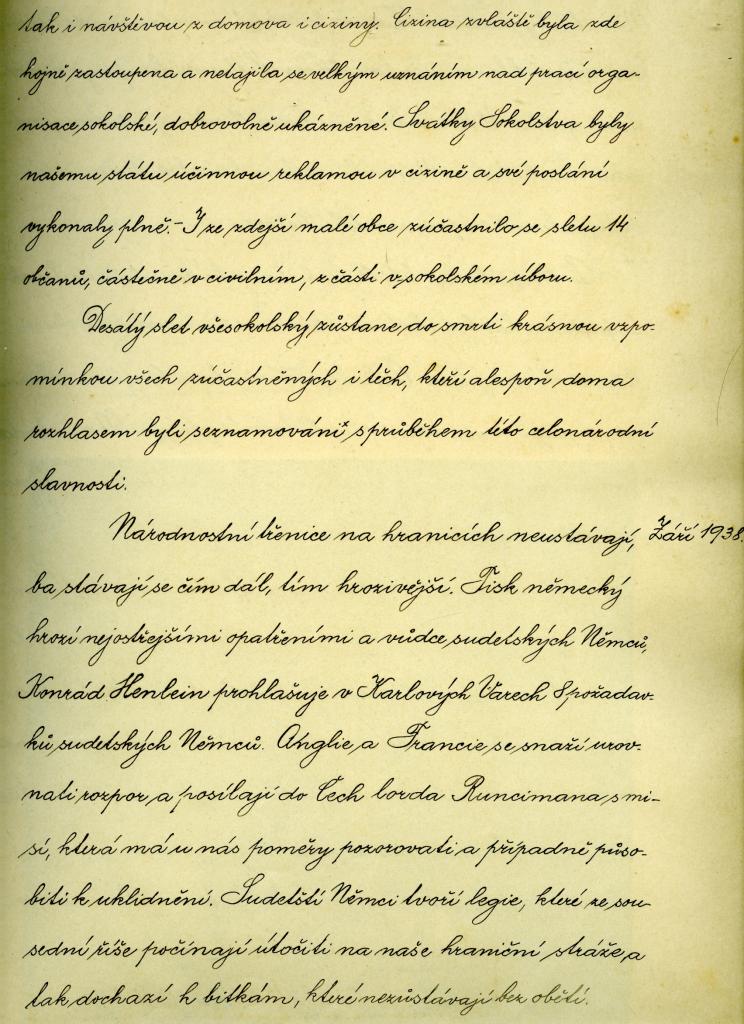 tak i návštěvou z domova i ciziny. Cizina zvláště byla zde
hojně zastoupena a netajila se velkým uznáním nad prací orga-
nisace sokolské, dobrovolně ukázněné. Svátky Sokolstva byly
našemu státu účinnou reklamou v cizině a své poslání
vykonaly plně. - I ze zdejší malé obce zúčastnilo se sletu 14
občanů, částečně v civilním, z části v sokolském úboru.
Desátý slet všesokolský zůstane do smrti krásnou vzpo-
mínkou všech zúčastněných i těch, kteří alespoň doma
rozhlasem byli seznamováni s průběhem této celonárodní
slavnosti.
Národnostní třenice na hranicích neustávají, Září 1938.
ba stávají se čím dál, tím hrozivější. Tisk německý
hrozí nejostřejšími opatřeními a vůdce sudetských Němců,
Konrád Henlein prohlašuje v Karlových Varech 8 požadav-
ků sudetských Němců. Anglie a Francie se snaží urov-
nati rozpor a posílají do Čech lorda Runcimana s mi-
sí, která má u nás poměry pozorovati a případně půso-
biti k uklidnění. Sudetští Němci tvoří legie, které ze sou-
sední říše počínají útočiti na naše hraniční stráže a
tak dochazí k bitkám, které nezůstávají bez obětí.